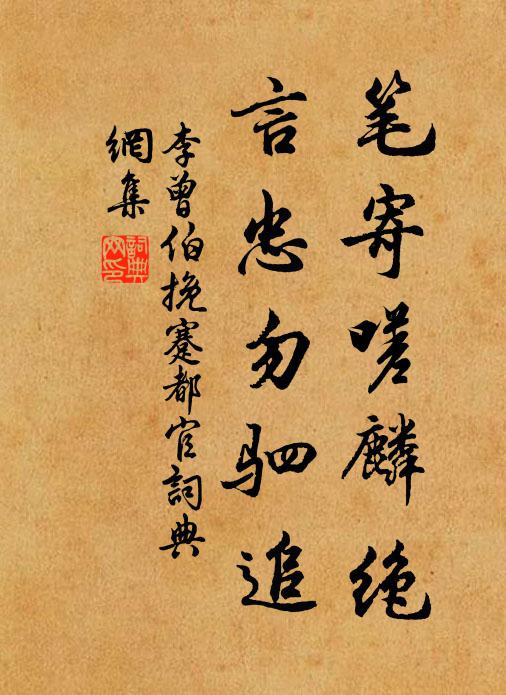 笔寄嗟麟绝
言忠勿驷追
李曾伯挽蹇都官詞典
網集
詞典
网印